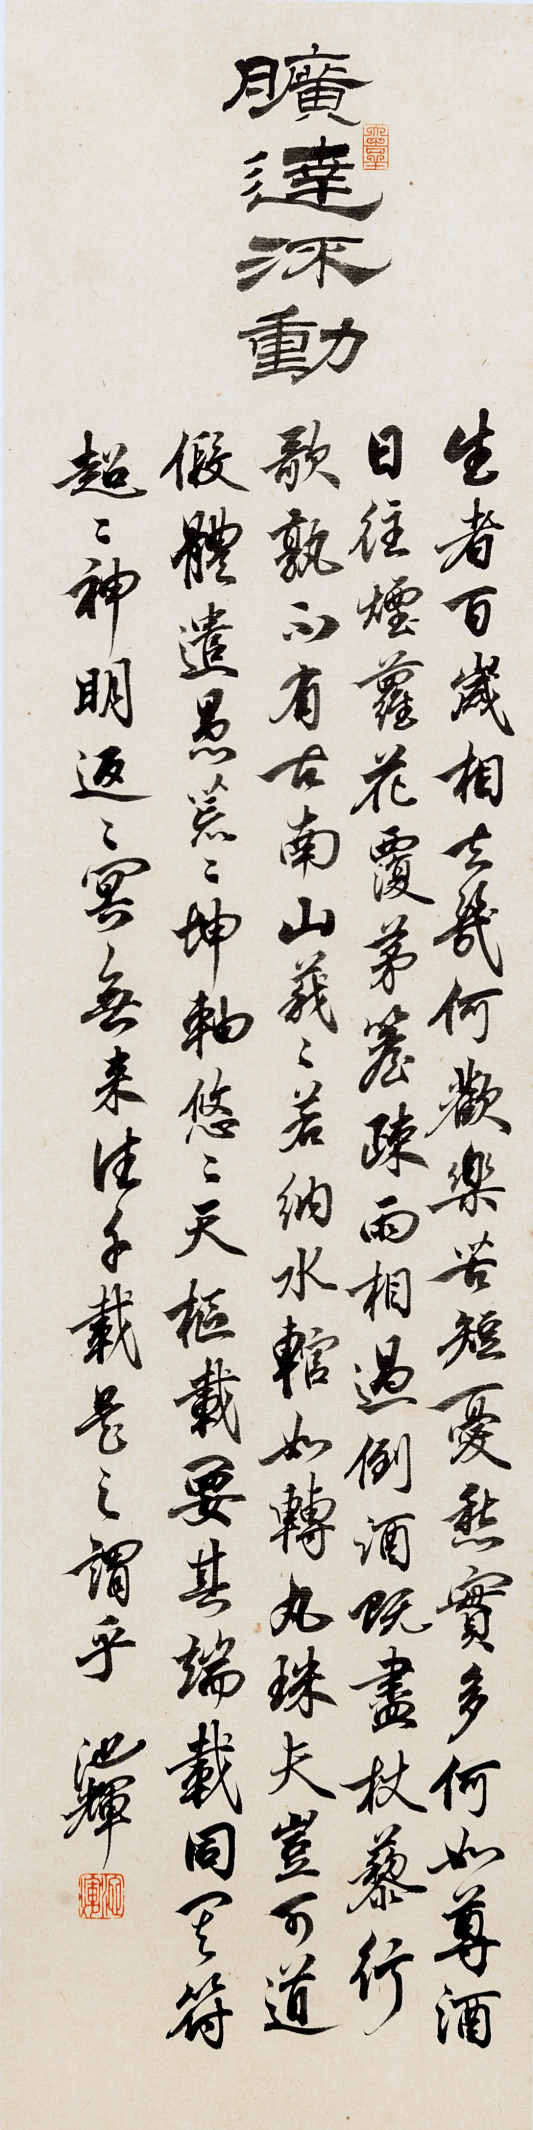 曠達流動
生者百歲相去幾何歡樂苦短憂愁實多何如尊酒
日往煙蘿花覆茅簷疎雨相過倒酒既盡杖藜行
歌孰不有古南山峩々若納水輨如轉丸珠夫豈可道
假體遺愚荒々坤軸悠々天樞載要其端載同其符
超々神明返々冥無来往千載是之謂乎
池輝